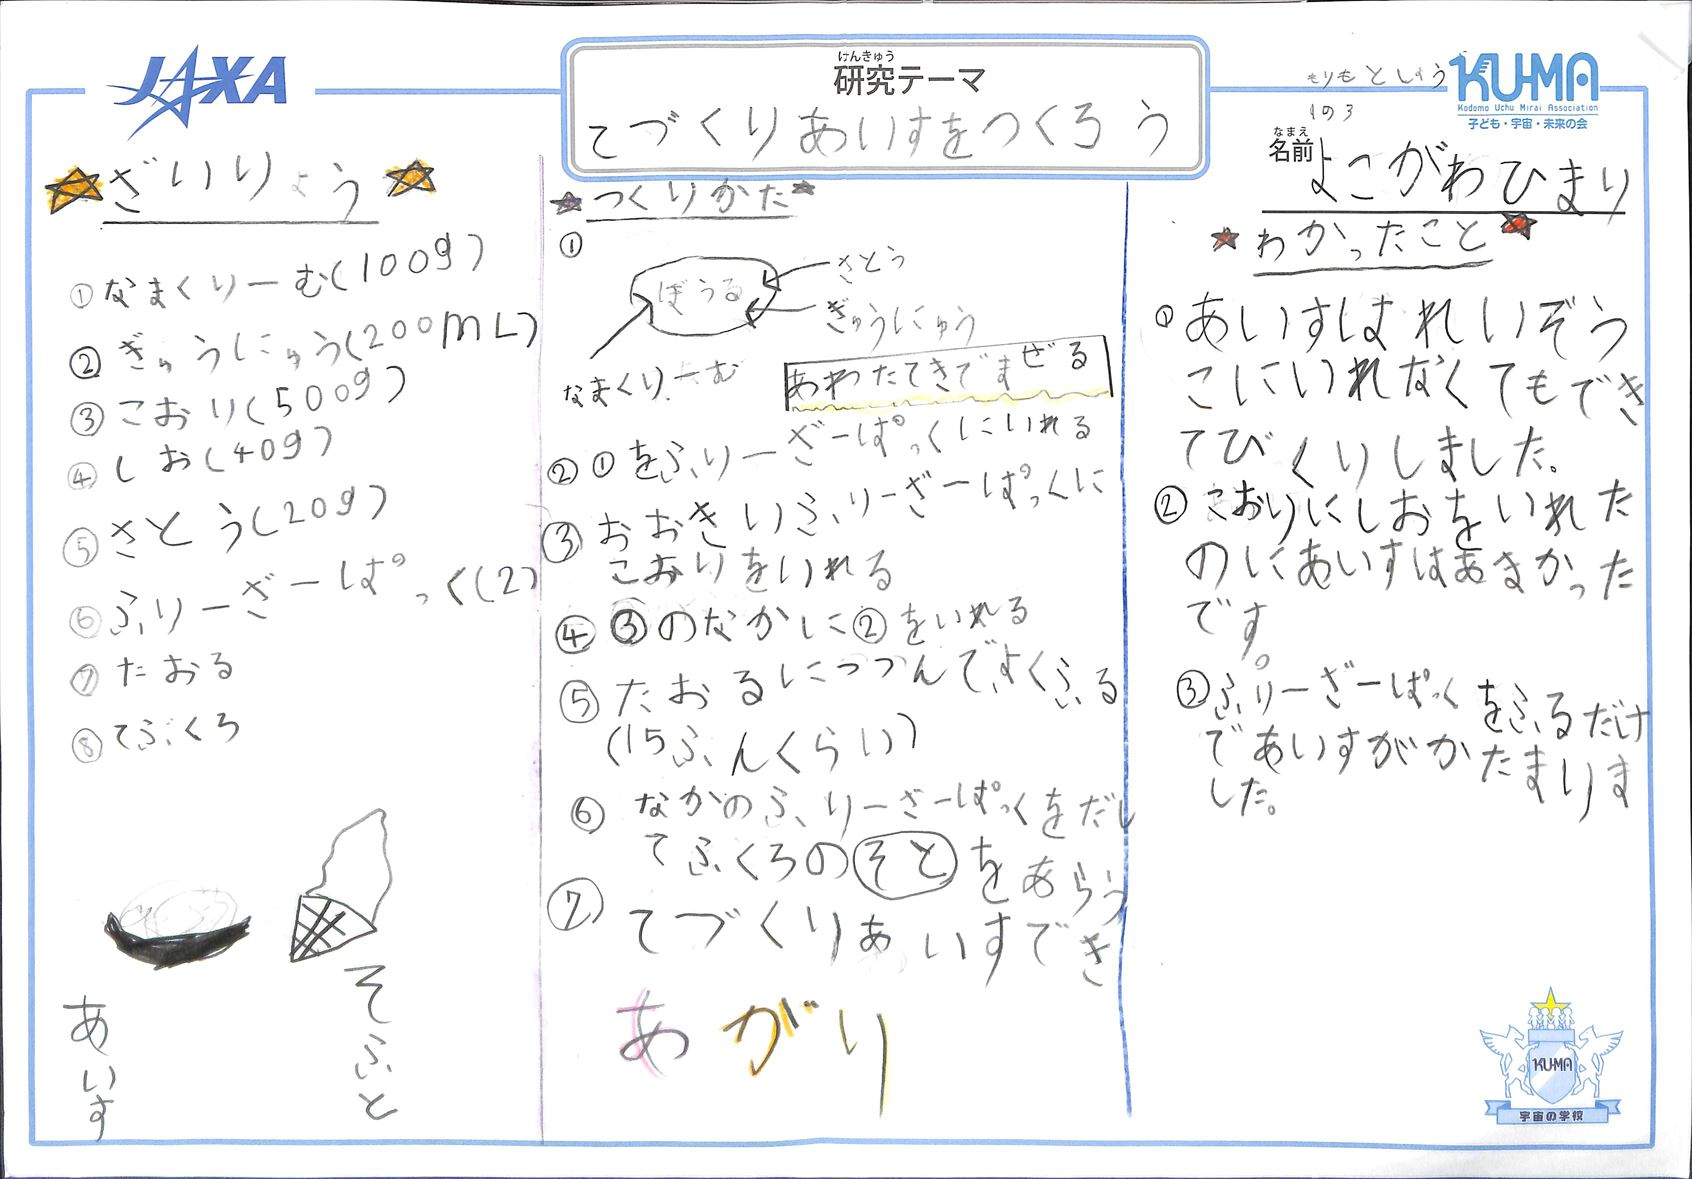 JAXA
けんきゅう
研究テーマ
てづくりあいすをつくろう
もりもとしょう
1の3
KU-MA
Kodomo Uchu Mirai Association
子ども・宇宙・未来の会
なまえ
名前
よこがわひまり
ざいりょう
①なまくりーむ(100g)
②ぎゅうにゅう(200mL)
③こおり(500g)
④しお(40g)
⑤さとう(20g)
⑥ふりーざーぱっく(2)
⑦たおる
⑧てぶくろ
あいす
そふと
つくりかた
①
ぼうる
さとう
ぎゅうにゅう
なまくりーむ
あわたてきでまぜる
②①をふりーざーぱっくにいれる
③おおきいふりーざーぱっくに
こおりをいれる
④③のなかに②をいれる
⑤たおるにつつんでよくふる
(15ふんくらい)
⑥なかのふりーざーぱっくをだし
てふくろのそとをあらう
⑦てづくりあいすでき
あがり
わかったこと
①あいすはれいぞう
こにいれなくてもでき
てびくりしました。
②こおりにしおをいれた
のにあいすはあまかった
です。
③ふりーざーぱっくをふるだけ
であいすがかたまりま
した。
KU-MA
宇宙の学校